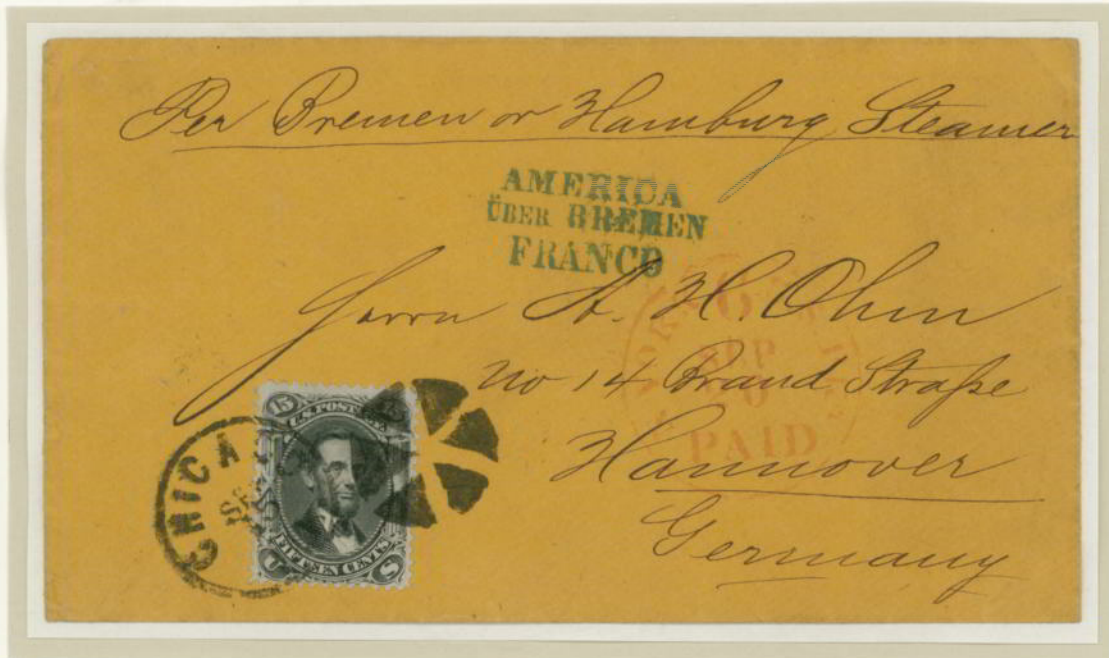 Per Bremen or Hamburg Steamer
AMERICA
ÜBER BREMEN
FRANCO
Herrn A. H. Ohm
No 14 Brand Straße
Hannover
Germany
SEP
PAID
CHICAGO
SEP
15
U.S. POSTAGE
FIFTEEN CENTS
U S